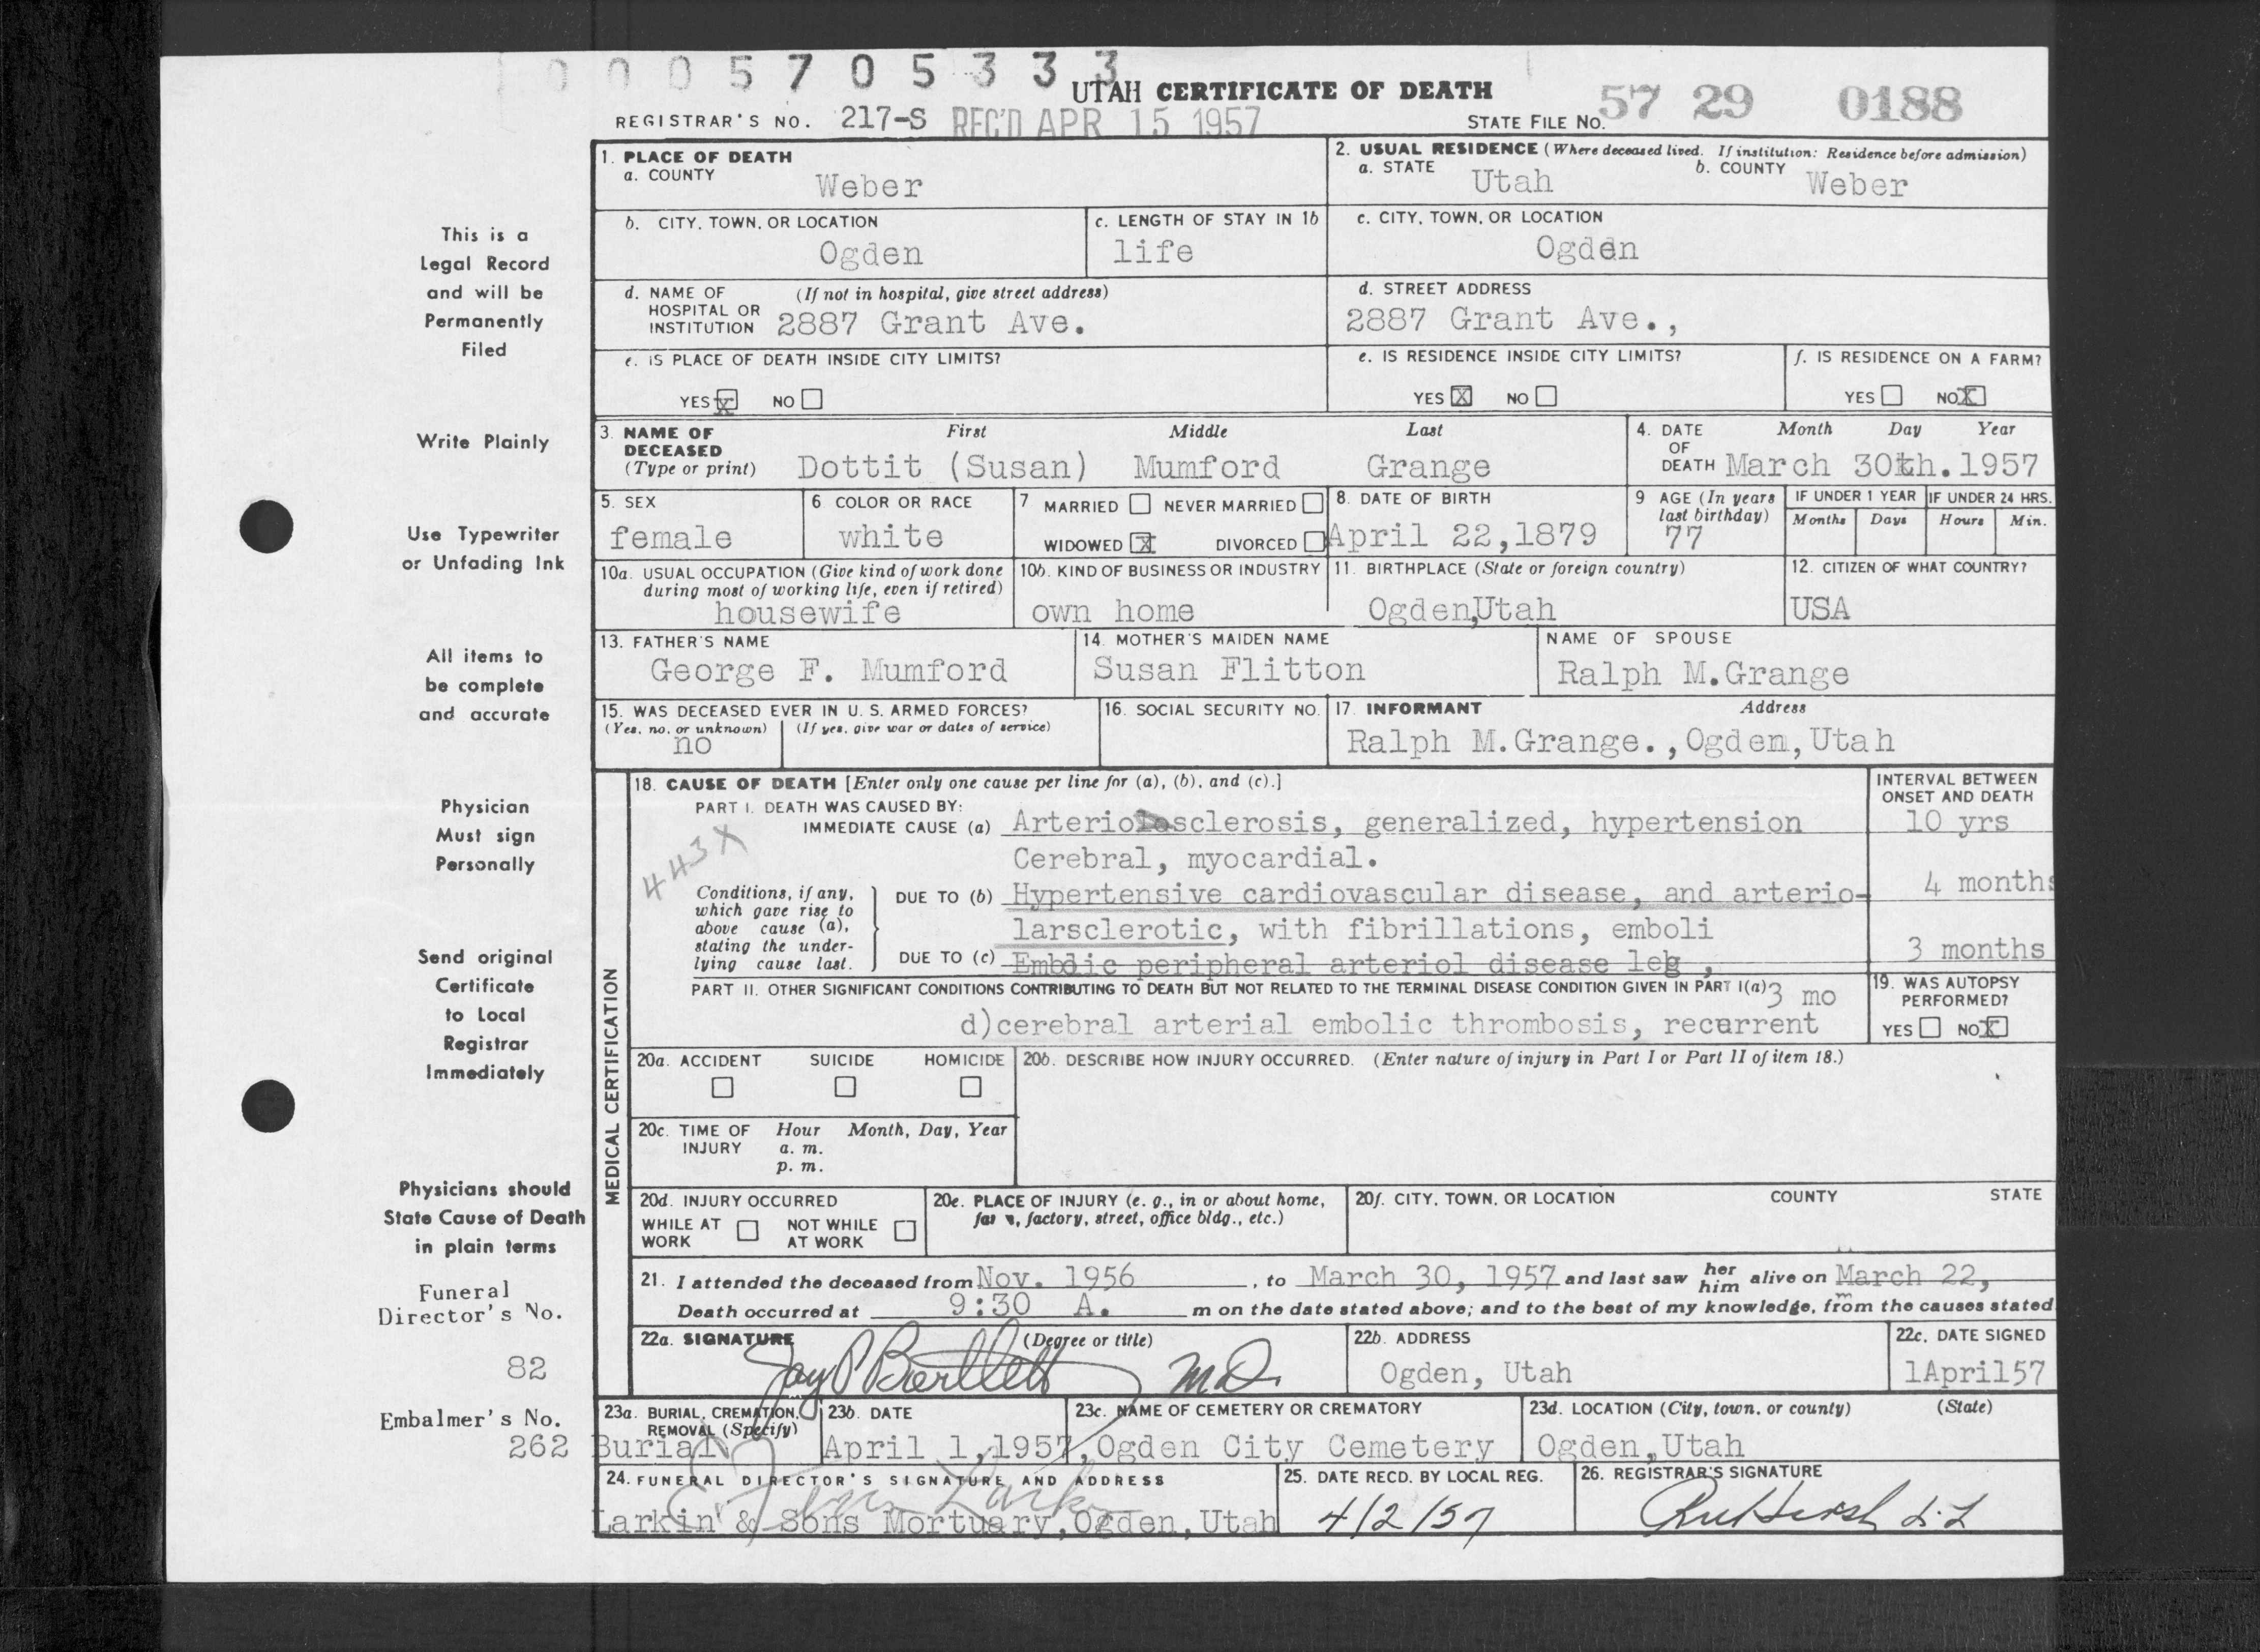 0005705333
UTAH CERTIFICATE OF DEATH
57 29 0188
REGISTRAR'S NO. 217-S REC'D APR 15 1957 STATE FILE No.
1. PLACE OF DEATH
a. COUNTY Weber
2. USUAL RESIDENCE (Where deceased lived. If institution: Residence before admission)
a. STATE Utah b. COUNTY Weber
b. CITY, TOWN, OR LOCATION Ogden
c. LENGTH OF STAY IN 1b life
c. CITY, TOWN, OR LOCATION Ogden
d. NAME OF HOSPITAL OR INSTITUTION (If not in hospital, give street address) 2887 Grant Ave.
d. STREET ADDRESS 2887 Grant Ave.,
e. IS PLACE OF DEATH INSIDE CITY LIMITS?
YES X NO
e. IS RESIDENCE INSIDE CITY LIMITS?
YES X NO
f. IS RESIDENCE ON A FARM?
YES NO X
3. NAME OF DECEASED (Type or print) First Middle Last
Dottit (Susan) Mumford Grange
4. DATE OF DEATH Month Day Year
March 30th. 1957
5. SEX female
6 COLOR OR RACE white
7 MARRIED NEVER MARRIED
WIDOWED X DIVORCED
8. DATE OF BIRTH April 22,1879
9 AGE (In years last birthday) 77
IF UNDER 1 YEAR Months Days
IF UNDER 24 HRS. Hours Min.
10a. USUAL OCCUPATION (Give kind of work done during most of working life, even if retired) housewife
10b. KIND OF BUSINESS OR INDUSTRY own home
11. BIRTHPLACE (State or foreign country) Ogden,Utah
12. CITIZEN OF WHAT COUNTRY? USA
13. FATHER'S NAME George F. Mumford
14. MOTHER'S MAIDEN NAME Susan Flitton
NAME OF SPOUSE Ralph M.Grange
15. WAS DECEASED EVER IN U. S. ARMED FORCES?
(Yes, no, or unknown) (If yes, give war or dates of service)
no
16. SOCIAL SECURITY NO.
17. INFORMANT Address
Ralph M.Grange.,Ogden,Utah
18. CAUSE OF DEATH [Enter only one cause per line for (a), (b), and (c).]
INTERVAL BETWEEN ONSET AND DEATH
PART I. DEATH WAS CAUSED BY:
IMMEDIATE CAUSE (a) Arteriolosclerosis, generalized, hypertension 10 yrs
Cerebral, myocardial.
443X
Conditions, if any, which gave rise to above cause (a), stating the underlying cause last.
DUE TO (b) Hypertensive cardiovascular disease, and arterio- 4 months
larsclerotic, with fibrillations, emboli
DUE TO (c) Embolic peripheral arteriol disease leg , 3 months
PART II. OTHER SIGNIFICANT CONDITIONS CONTRIBUTING TO DEATH BUT NOT RELATED TO THE TERMINAL DISEASE CONDITION GIVEN IN PART I(a) 3 mo
d)cerebral arterial embolic thrombosis, recurrent
19. WAS AUTOPSY PERFORMED?
YES NO X
MEDICAL CERTIFICATION
20a. ACCIDENT SUICIDE HOMICIDE
20b. DESCRIBE HOW INJURY OCCURRED. (Enter nature of injury in Part I or Part II of item 18.)
20c. TIME OF INJURY Hour Month, Day, Year
a. m.
p. m.
20d. INJURY OCCURRED
WHILE AT WORK NOT WHILE AT WORK
20e. PLACE OF INJURY (e. g., in or about home, farm, factory, street, office bldg., etc.)
20f. CITY, TOWN, OR LOCATION COUNTY STATE
21. I attended the deceased from Nov. 1956, to March 30, 1957 and last saw her him alive on March 22,
Death occurred at 9:30 A. m on the date stated above; and to the best of my knowledge, from the causes stated
22a. SIGNATURE (Degree or title)
Jay P Bartlett M.D.
22b. ADDRESS Ogden, Utah
22c. DATE SIGNED 1April57
23a. BURIAL, CREMATION, REMOVAL (Specify) Burial
23b. DATE April 1,1957,
23c. NAME OF CEMETERY OR CREMATORY Ogden City Cemetery
23d. LOCATION (City, town, or county) (State) Ogden,Utah
24. FUNERAL DIRECTOR'S SIGNATURE AND ADDRESS
Larkin & Sons Mortuary,Ogden,Utah
25. DATE RECD. BY LOCAL REG. 4/2/57
26. REGISTRAR'S SIGNATURE
This is a
Legal Record
and will be
Permanently
Filed
Write Plainly
Use Typewriter
or Unfading Ink
All items to
be complete
and accurate
Physician
Must sign
Personally
Send original
Certificate
to Local
Registrar
Immediately
Physicians should
State Cause of Death
in plain terms
Funeral
Director's No.
82
Embalmer's No.
262